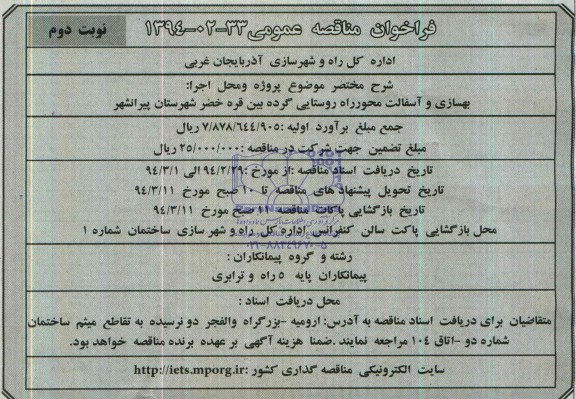 فراخوان مناقصه عمومی ۳۳-۰۲-۱۳۹۴
نوبت دوم
اداره کل راه و شهرسازی آذربایجان غربی
شرح مختصر موضوع پروژه ومحل اجرا:
بهسازی و آسفالت محورراه روستایی گرده بین قره خضر شهرستان پیرانشهر
جمع مبلغ برآورد اولیه :۷/۸۷۸/۶۴۴/۹۰۵ ریال
مبلغ تضمین جهت شرکت در مناقصه :۲۵/۰۰۰/۰۰۰ ریال
تاریخ دریافت اسناد مناقصه :از مورخ :۹۴/۲/۲۹ الی ۹۴/۳/۱
تاریخ تحویل پیشنهاد های مناقصه تا ۱۰ صبح مورخ ۹۴/۳/۱۱
تاریخ بازگشایی پاکات مناقصه ۱۱ صبح مورخ ۹۴/۳/۱۱
محل بازگشایی پاکت سالن کنفرانس اداره کل راه و شهر سازی ساختمان شماره ۱
۰۲۱-۸۸۳۴۹۶۷۰-۵
رشته و گروه پیمانکاران :
پیمانکاران پایه ۵ راه و ترابری
محل دریافت اسناد :
متقاضیان برای دریافت اسناد مناقصه به آدرس: ارومیه -بزرگراه والفجر دو نرسیده به تقاطع میثم ساختمان
شماره دو -اتاق ۱۰۴ مراجعه نمایند .ضمنا هزینه آگهی بر عهده برنده مناقصه خواهد بود.
سایت الکترونیکی مناقصه گذاری کشور :http://iets.mporg.ir